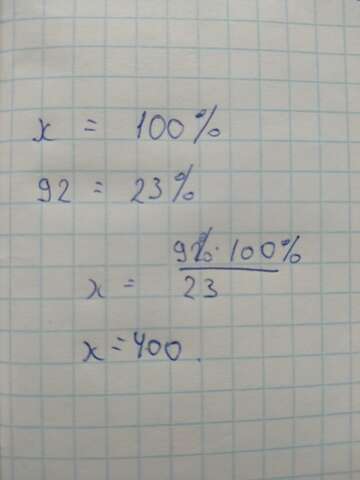 x = 100%
92 = 23%
x = 92·100% / 23
x = 400.